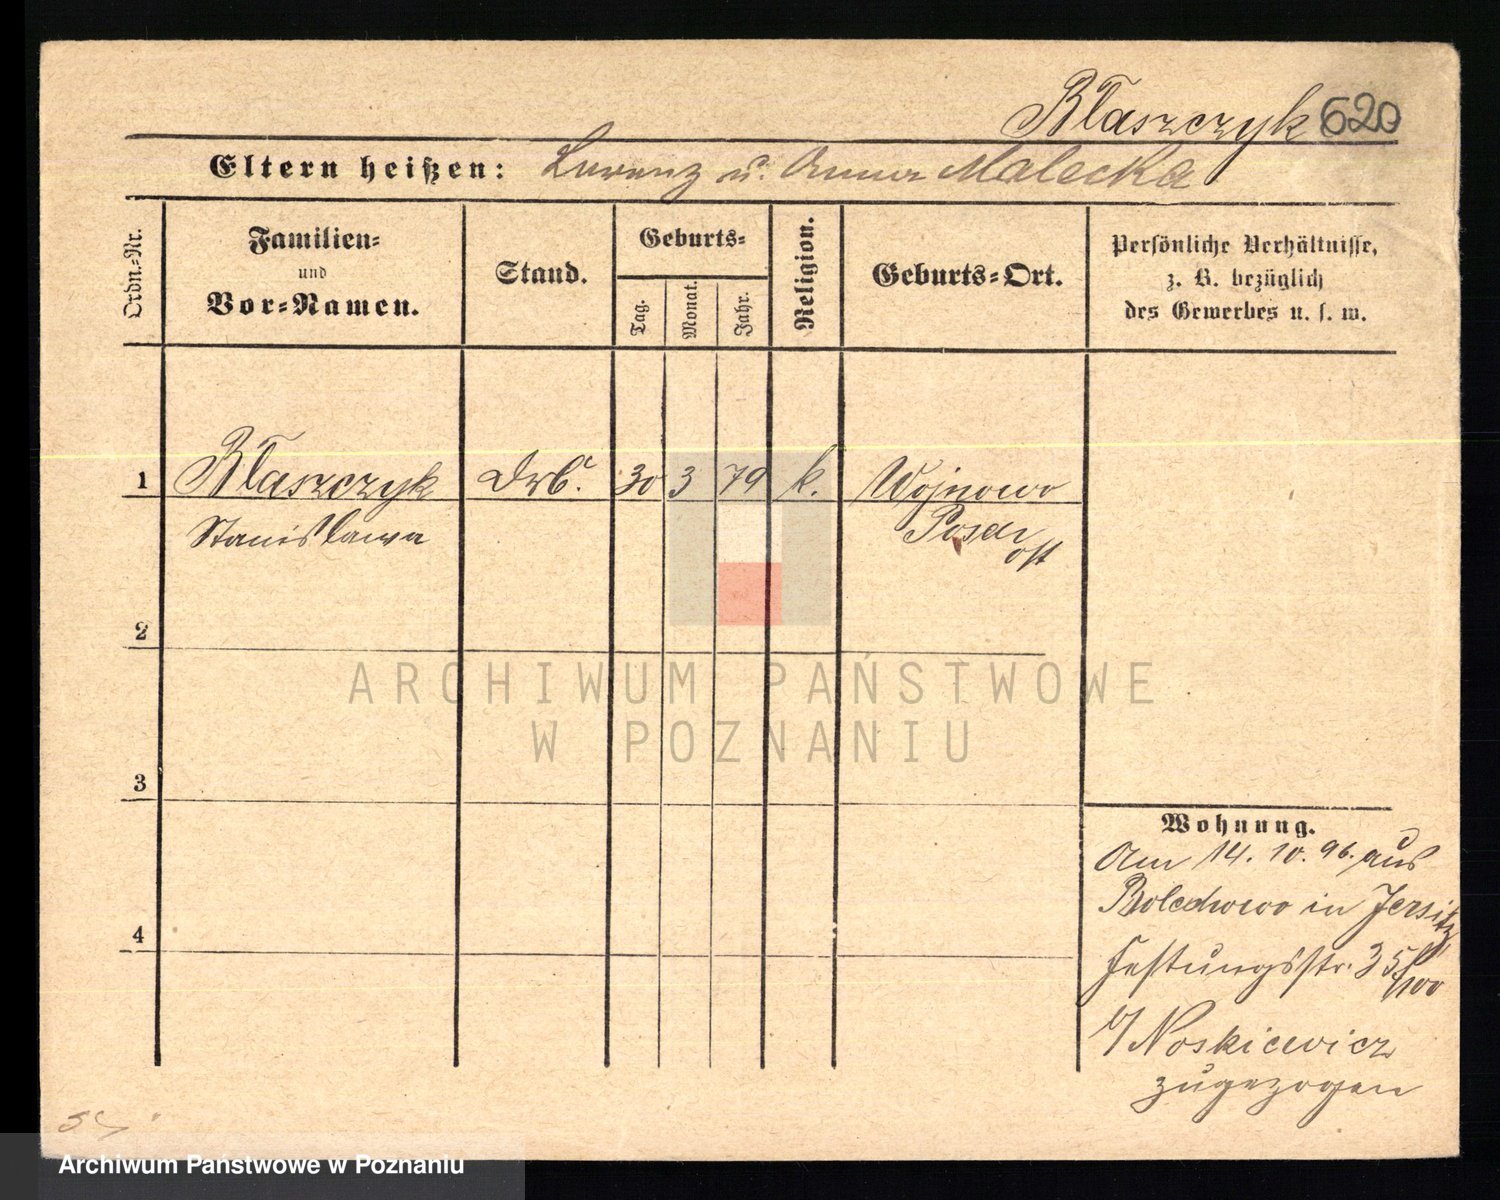 Błaszczyk 620
Eltern heißen: Lorenz u. Anna Malecka
Ordn.-Nr.
Familien-
und
Vor-Namen.
Stand.
Geburts-
Tag.
Monat.
Jahr.
Religion.
Geburts-Ort.
Persönliche Verhältnisse,
z. B. bezüglich
des Gewerbes u. s. w.
1 Błaszczyk Arb. 30 3 79 k. Wojnowo
Stanisława Posen
ost
2
ARCHIWUM PAŃSTWOWE
W POZNANIU
3
Wohnung.
Am 14. 10. 96. aus
Bolechowo in Jersitz
4
Festungsstr. 35
b/ Noskiewicz
zugezogen
Archiwum Państwowe w Poznaniu